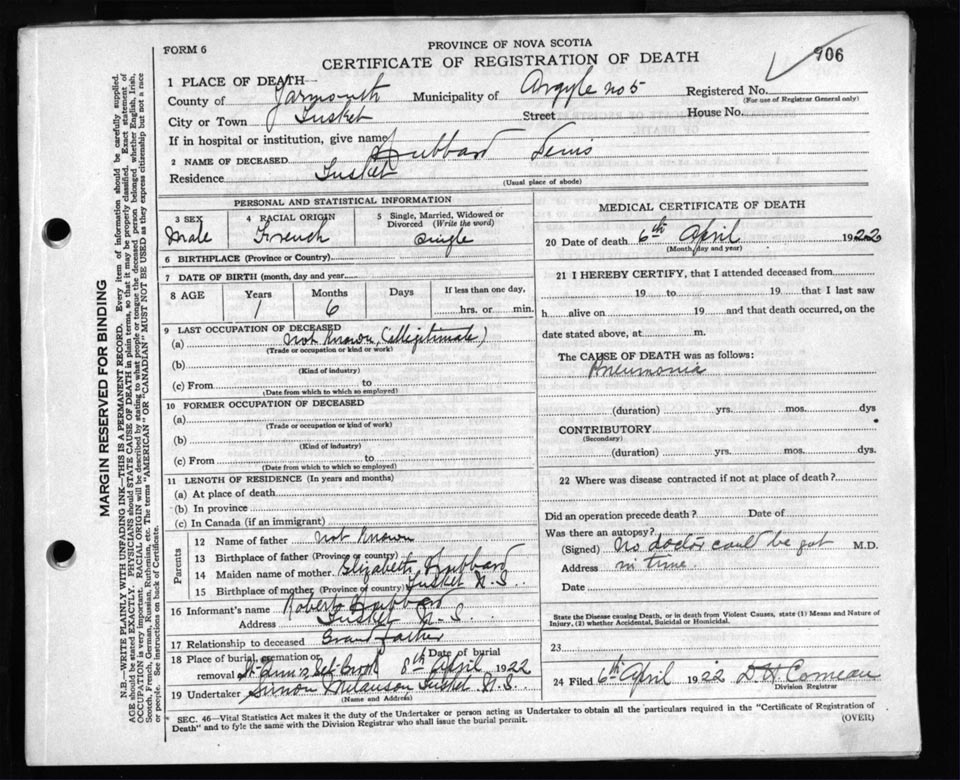 FORM 6
PROVINCE OF NOVA SCOTIA
CERTIFICATE OF REGISTRATION OF DEATH
906
1 PLACE OF DEATH—
County of Yarmouth Municipality of Argyle no 5 Registered No.
(For use of Registrar General only)
City or Town Tusket Street House No.
If in hospital or institution, give name
2 NAME OF DECEASED Hubbard
Residence Tusket
(Usual place of abode)
PERSONAL AND STATISTICAL INFORMATION
3 SEX
Male
4 RACIAL ORIGIN
French
5 Single, Married, Widowed or
Divorced (Write the word)
Single
6 BIRTHPLACE (Province or Country)
7 DATE OF BIRTH (month, day and year
8 AGE Years Months Days If less than one day,
1 6 hrs. or min.
9 LAST OCCUPATION OF DECEASED
(a) not Known (Illegitimate)
(Trade or occupation or kind or work)
(b)
(Kind of industry)
(c) From to
(Date from which to which so employed)
10 FORMER OCCUPATION OF DECEASED
(a)
(Trade or occupation or kind of work)
(b)
(Kind of industry)
(c) From to
(Date from which to which so employed)
11 LENGTH OF RESIDENCE (In years and months)
(a) At place of death
(b) In province
(c) In Canada (if an immigrant)
Parents
12 Name of father not Known
13 Birthplace of father (Province or country)
14 Maiden name of mother Elizabeth Hubbard
15 Birthplace of mother (Province or country) Tusket N.S.
16 Informant's name Robert Hubbard
Address Tusket N.S.
17 Relationship to deceased Grand father
18 Place of burial, cremation or Date of burial
removal St Ann's Eel Brook 8th April 1922
19 Undertaker Simon Melanson Tusket N.S.
(Name and Address)
MEDICAL CERTIFICATE OF DEATH
20 Date of death 6th April 1922
(Month, day and year)
21 I HEREBY CERTIFY, that I attended deceased from
19 to 19 that I last saw
h alive on 19 and that death occurred, on the
date stated above, at m.
The CAUSE OF DEATH was as follows:
Pneumonia
(duration) yrs. mos. dys
CONTRIBUTORY
(Secondary)
(duration) yrs. mos. dys.
22 Where was disease contracted if not at place of death?
Did an operation precede death? Date of
Was there an autopsy?
(Signed) No doctor could be got M.D.
Address in time.
Date
State the Disease causing Death, or in death from Violent Causes, state (1) Means and Nature of
Injury, (2) whether Accidental, Suicidal or Homicidal.
23
24 Filed 6th April 1922 D H Comeau
Division Registrar
* SEC. 46—Vital Statistics Act makes it the duty of the Undertaker or person acting as Undertaker to obtain all the particulars required in the "Certificate of Registration of
Death" and to fyle the same with the Division Registrar who shall issue the burial permit.
(OVER)
MARGIN RESERVED FOR BINDING
N.B.—WRITE PLAINLY WITH UNFADING INK—THIS IS A PERMANENT RECORD. Every item of information should be carefully supplied.
AGE should be stated EXACTLY. PHYSICIANS should STATE CAUSE OF DEATH in plain terms, so that it may be properly classified. Exact statement of
OCCUPATION is very important. RACIAL ORIGIN will be described by stating to what people or tongue the deceased person belonged, whether English, Irish,
Scotch, French, German, Russian, Ruthenian, etc. The terms "AMERICAN" OR "CANADIAN" MUST NOT BE USED as they express citizenship but not a race
or people. See instructions on back of Certificate.